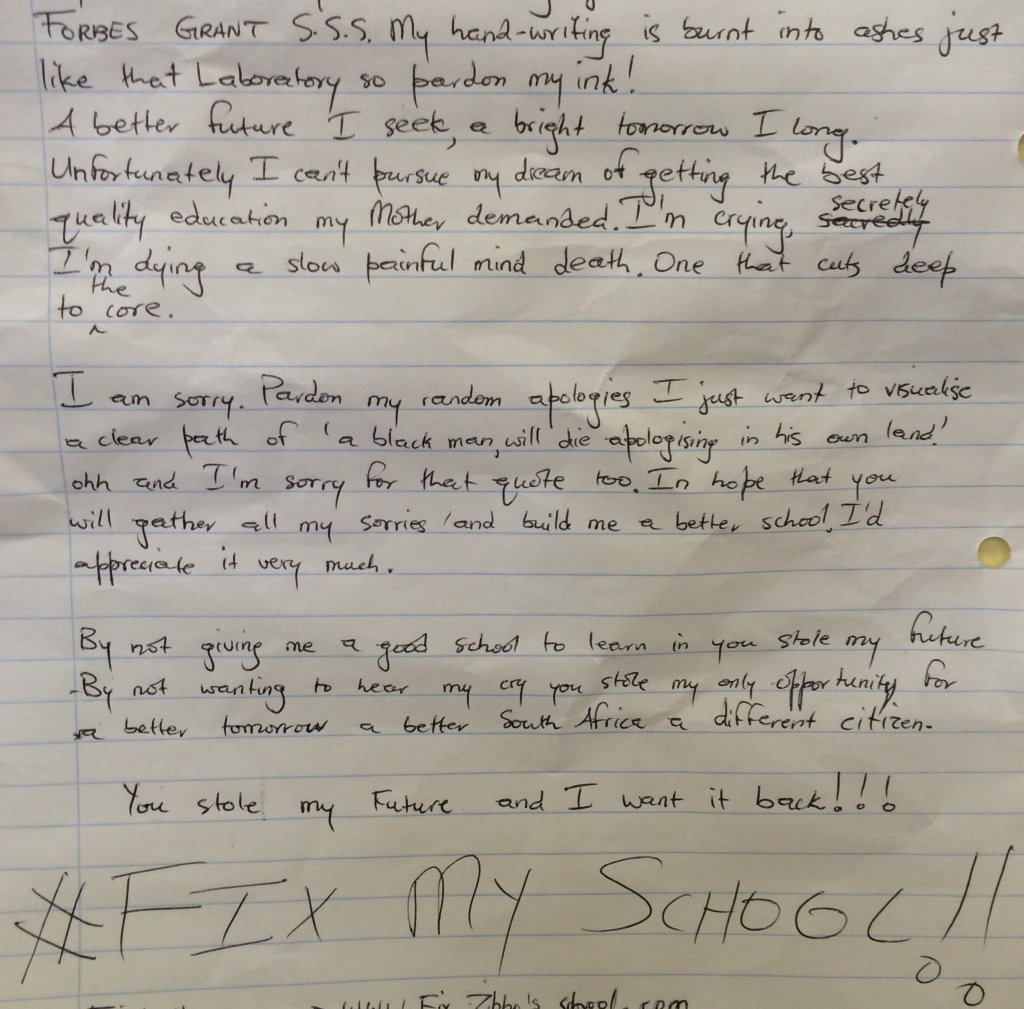 FORBES GRANT S.S.S. My hand-writing is burnt into ashes just
like that Laboratory so pardon my ink!
A better future I seek, a bright tomorrow I long.
Unfortunately I can't pursue my dream of getting the best
quality education my Mother demanded. I'm crying, sacredly secretely
I'm dying a slow painful mind death. One that cuts deep
to the core.
I am sorry. Pardon my random apologies I just want to visualise
a clear path of 'a black man, will die apologising in his own land!'
ohh and I'm sorry for that quote too. In hope that you
will gather all my sorries and build me a better school, I'd
appreciate it very much.
By not giving me a good school to learn in you stole my future
-By not wanting to hear my cry you stole my only opportunity for
a better tomorrow a better South Africa a different citizen.
You stole my Future and I want it back!!!
#FIX MY SCHOOL!!
school.com